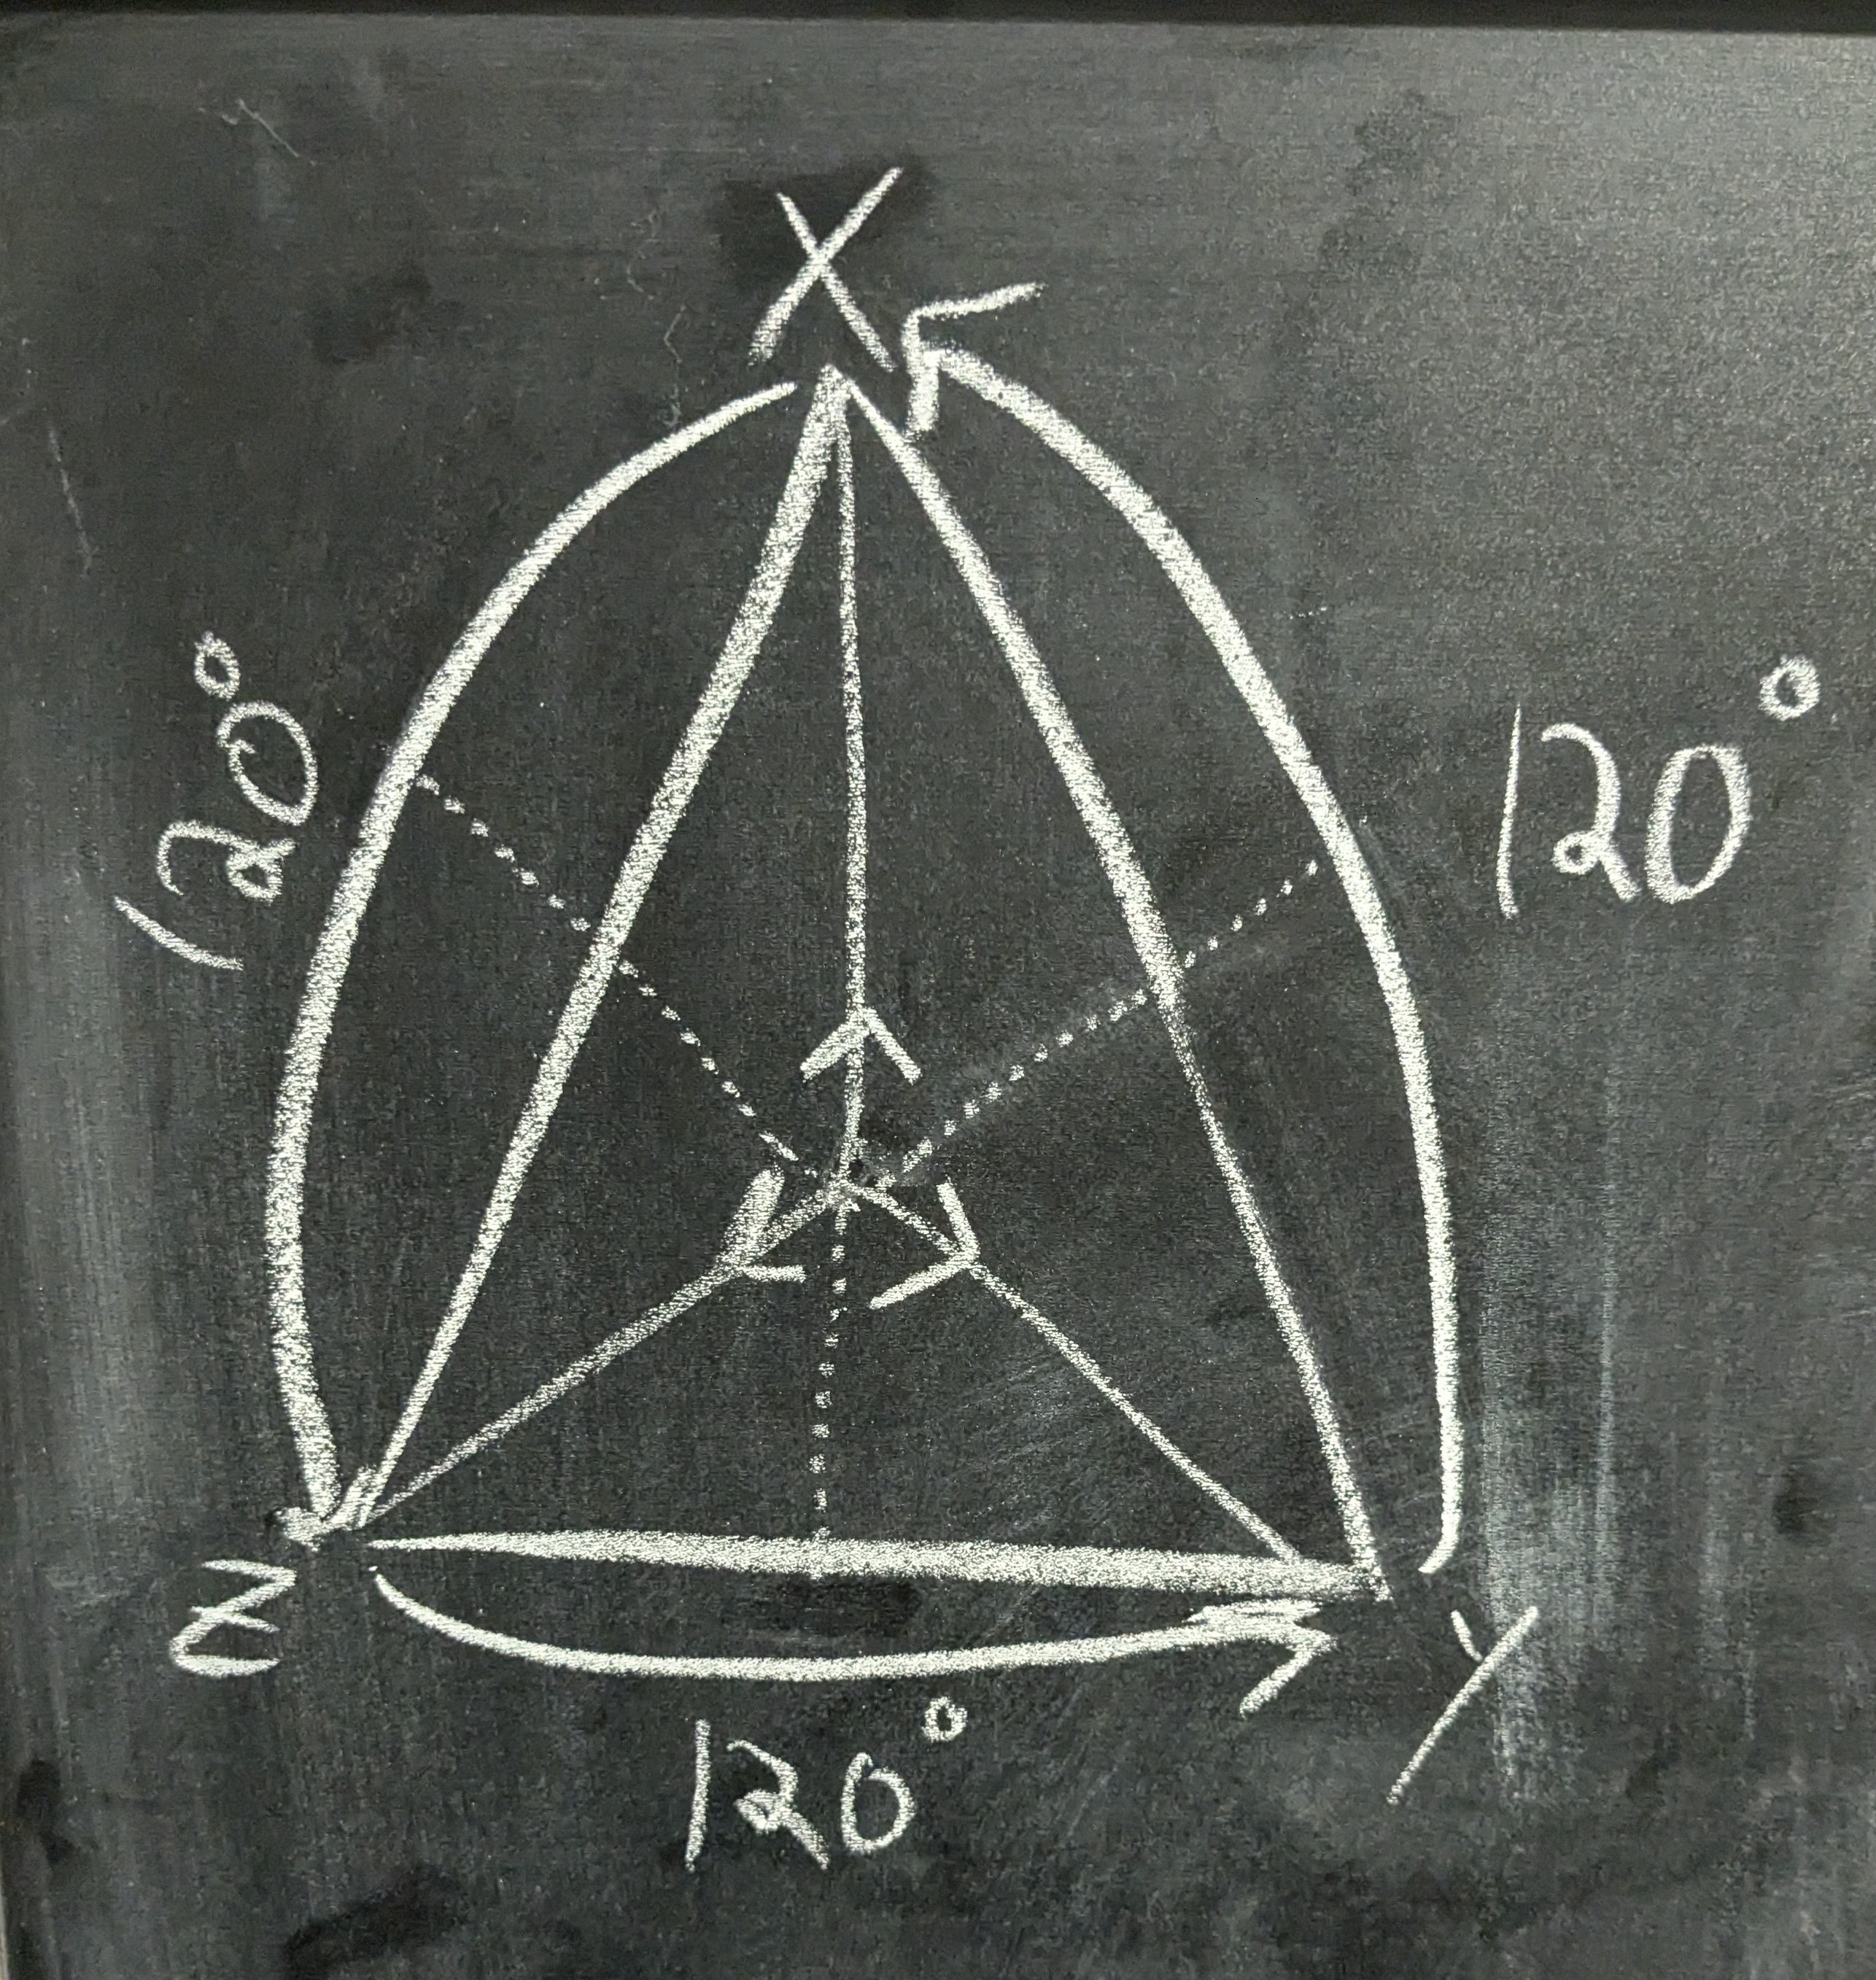 X
120°
120°
Z
Y
120°